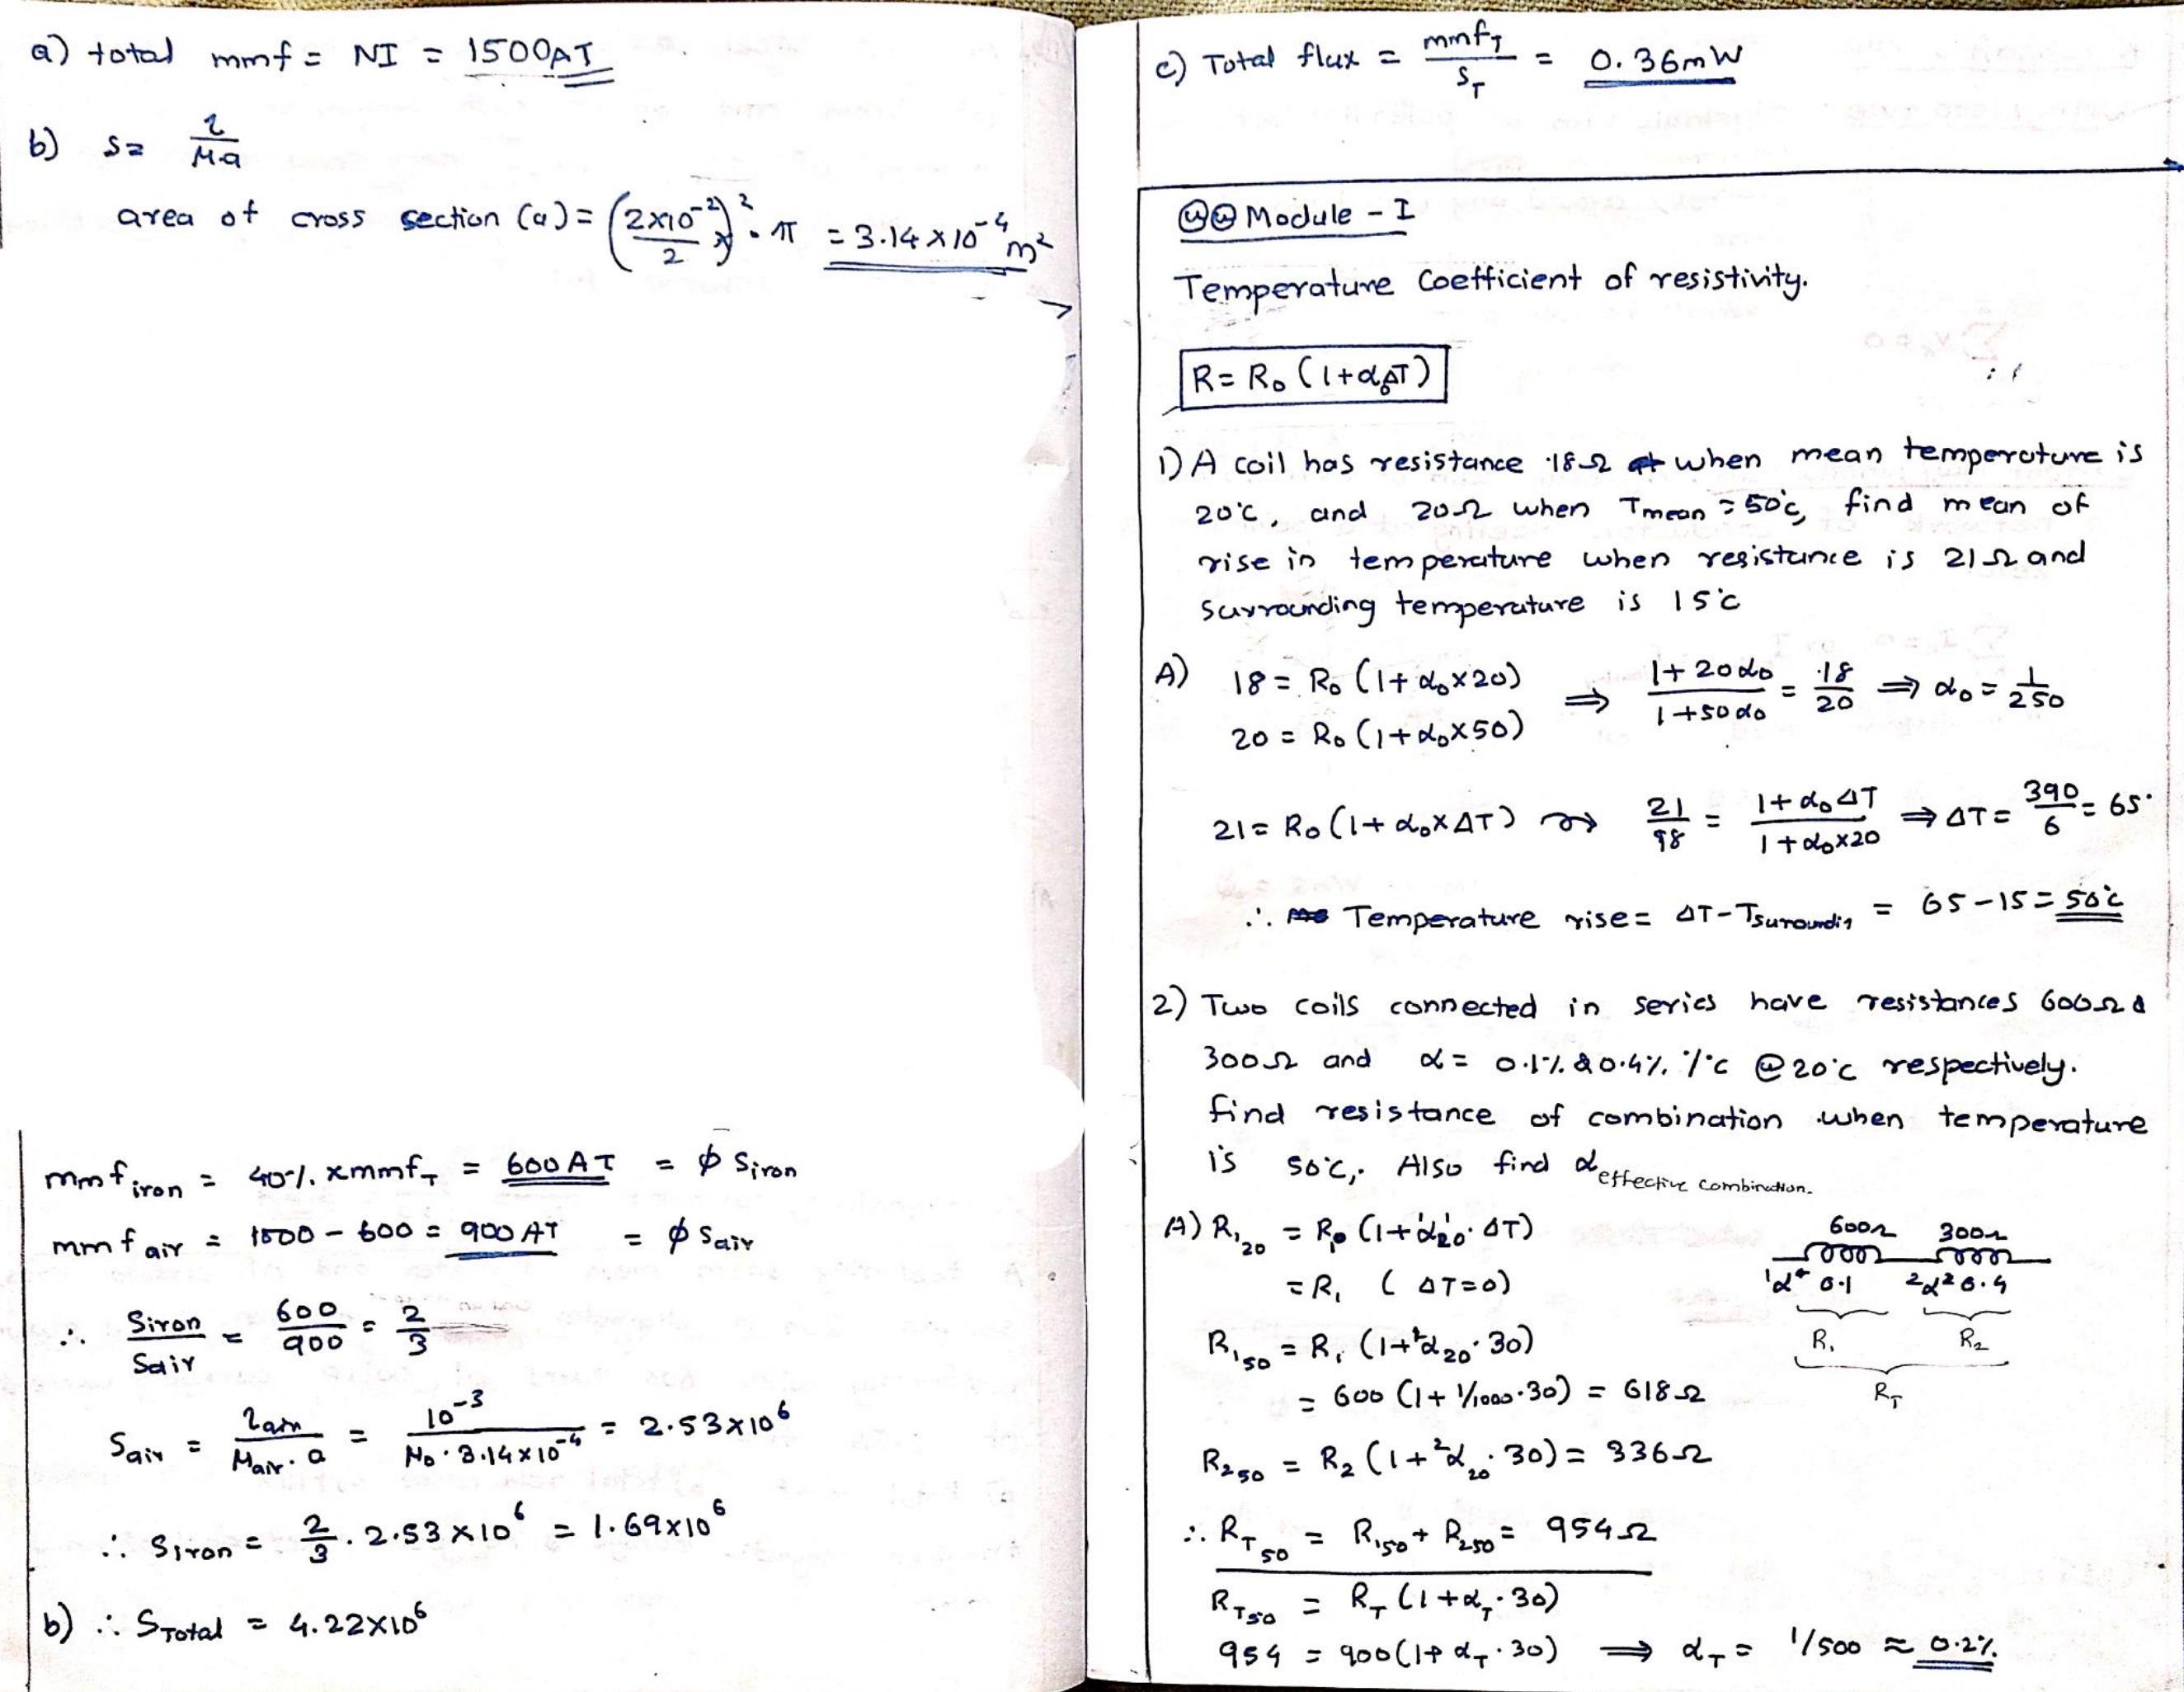 a) total mmf = NI = 1500AT
b) S = l/μa
area of cross section (a) = (2×10⁻²/2)² · π = 3.14×10⁻⁴ m²
mmf iron = 40% × mmf_T = 600 AT = φ S_iron
mmf air = 1500 - 600 = 900 AT = φ S_air
∴ S_iron/S_air = 600/900 = 2/3
S_air = l_air/μ_air · a = 10⁻³/μ₀ · 3.14×10⁻⁴ = 2.53×10⁶
∴ S_iron = 2/3 · 2.53×10⁶ = 1.69×10⁶
b) ∴ S_Total = 4.22×10⁶
c) Total flux = mmf_T/S_T = 0.36mW
Module - I
Temperature Coefficient of resistivity.
R = R₀ (1+α₀ΔT)
1) A coil has resistance 18Ω when mean temperature is
20°C, and 20Ω when Tmean = 50°C, find mean of
rise in temperature when resistance is 21Ω and
surrounding temperature is 15°C
A) 18 = R₀ (1+α₀×20) ⇒ 1+20α₀/1+50α₀ = 18/20 ⇒ α₀ = 1/250
20 = R₀ (1+α₀×50)
21 = R₀ (1+α₀×ΔT) ⇝ 21/18 = 1+α₀ΔT/1+α₀×20 ⇒ ΔT = 390/6 = 65°
∴ Temperature rise = ΔT - Tsuroundin = 65-15 = 50°C
2) Two coils connected in series have resistances 600Ω &
300Ω and α = 0.1% & 0.4% /°C @ 20°C respectively.
find resistance of combination when temperature
is 50°C,. Also find α effective combination.
A) R₁₂₀ = R₁₀ (1+¹α₂₀ · ΔT)
600Ω 300Ω
= R₁ ( ΔT=0)
¹α = 0.1 ²α = 0.4
R₁₅₀ = R₁ (1+¹α₂₀ · 30)
R₁ R₂
= 600 (1+ 1/1000 · 30) = 618Ω
R_T
R₂₅₀ = R₂ (1+²α₂₀ · 30) = 336Ω
∴ R_T₅₀ = R₁₅₀ + R₂₅₀ = 954Ω
R_T₅₀ = R_T (1+α_T · 30)
954 = 900(1+ α_T · 30) ⇒ α_T = 1/500 ≈ 0.2%